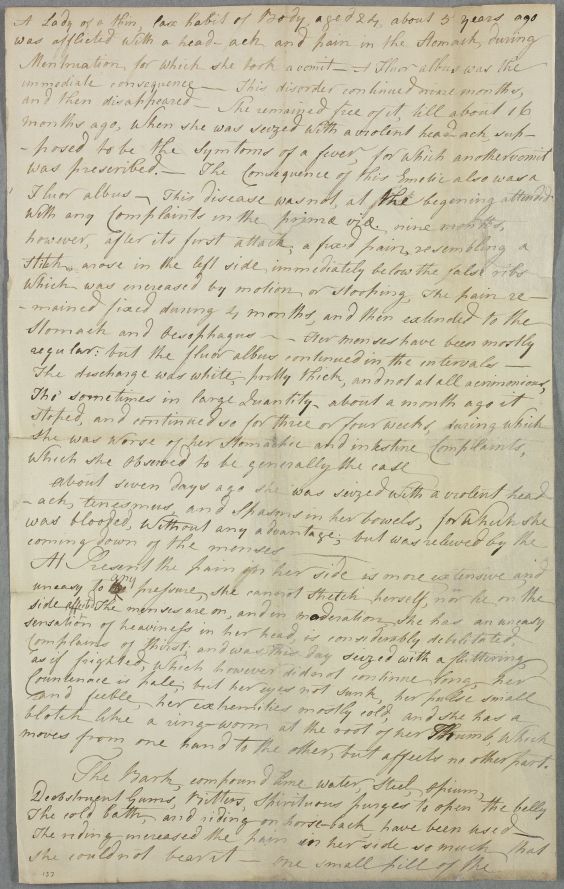 A Lady of a thin, lax habit of Body, aged 24, about 5 years ago
was afflicted with a head-ach and pain in the Stomach, during
Menstruation, for which she took a vomit — A Fluor albus was the
immediate consequence — This disorder continued nine months,
and then disappeared — She remained free of it, till about 16
months ago, when she was seized with a violent head-ach sup-
-posed to be the Symtoms of a fever, for which another vomit
was prescribed. — The Consequence of this Emetic also was a
Fluor albus — This disease was not, at the begening attended
with any Complaints in the primæ viæ, nine months,
however, after its first attack, a fixed pain, resembling a
Stitch, arose in the left side immediately below the false ribs
which was increased by motion or stooping, The pain re-
-mained fixed during 4 months, and then extended to the
Stomach and Oesophagus — Her menses have been mostly
regular: but the fluor albus continued in the intervals —
The discharge was white, pretty thick, and not at all acrimonious,
Tho' sometimes in large quantity. about a month ago it
stoped, and continued so for three or four weeks, during which
she was worse of her Stomachic and intestine Complaints,
which she observed to be generally the case
About seven days ago she was seized with a violent head
-ach, tenesmus, and Spasms in her bowels, for which she
was blooded, without any advantage; but was relieved by the
coming down of the menses
At Present the pain in her side is more extensive and
uneasy to any pressure, she cannot stretch herself, nor lie on the
side The menses are on, and in moderation, she has an uneasy
sensation of heaviness in her head, is considerably debilitated
complains of thirst, and was this day seized with a fluttering
as if frighted, which however did not continue long, her
Countenace is pale, but her eyes not sunk, her pulse small
and feeble, her extremities mostly cold, and she has a
blotch like a ring-worm at the root of her Thumb, which
moves from one hand to the other, but affects no other part.
The Bark, compound lime water, Steel, opium,
Deobstruent Gums, Bitters, Spirituous purges to open the belly
The cold bath, and riding on horse-back have been used —
The riding increased the pain in her side so much, that
she could not bear it — one small pill of the
137